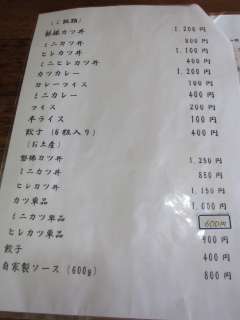 (ご飯類)
磐梯カツ丼 1,200円
ミニカツ丼 800円
ヒレカツ丼 1,100円
ミニヒレカツ丼 円
カツカレー 1,200円
カレーライス 円
ミニカレー 400円
ライス 200円
半ライス 100円
餃子(6粒入り) 400円
(お土産)
磐梯カツ丼 1,250円
ミニカツ丼 850円
ヒレカツ丼 1,150円
カツ単品 1,000円
ミニカツ単品 600円
ヒレカツ単品 円
餃子 400円
自家製ソース(600g) 800円